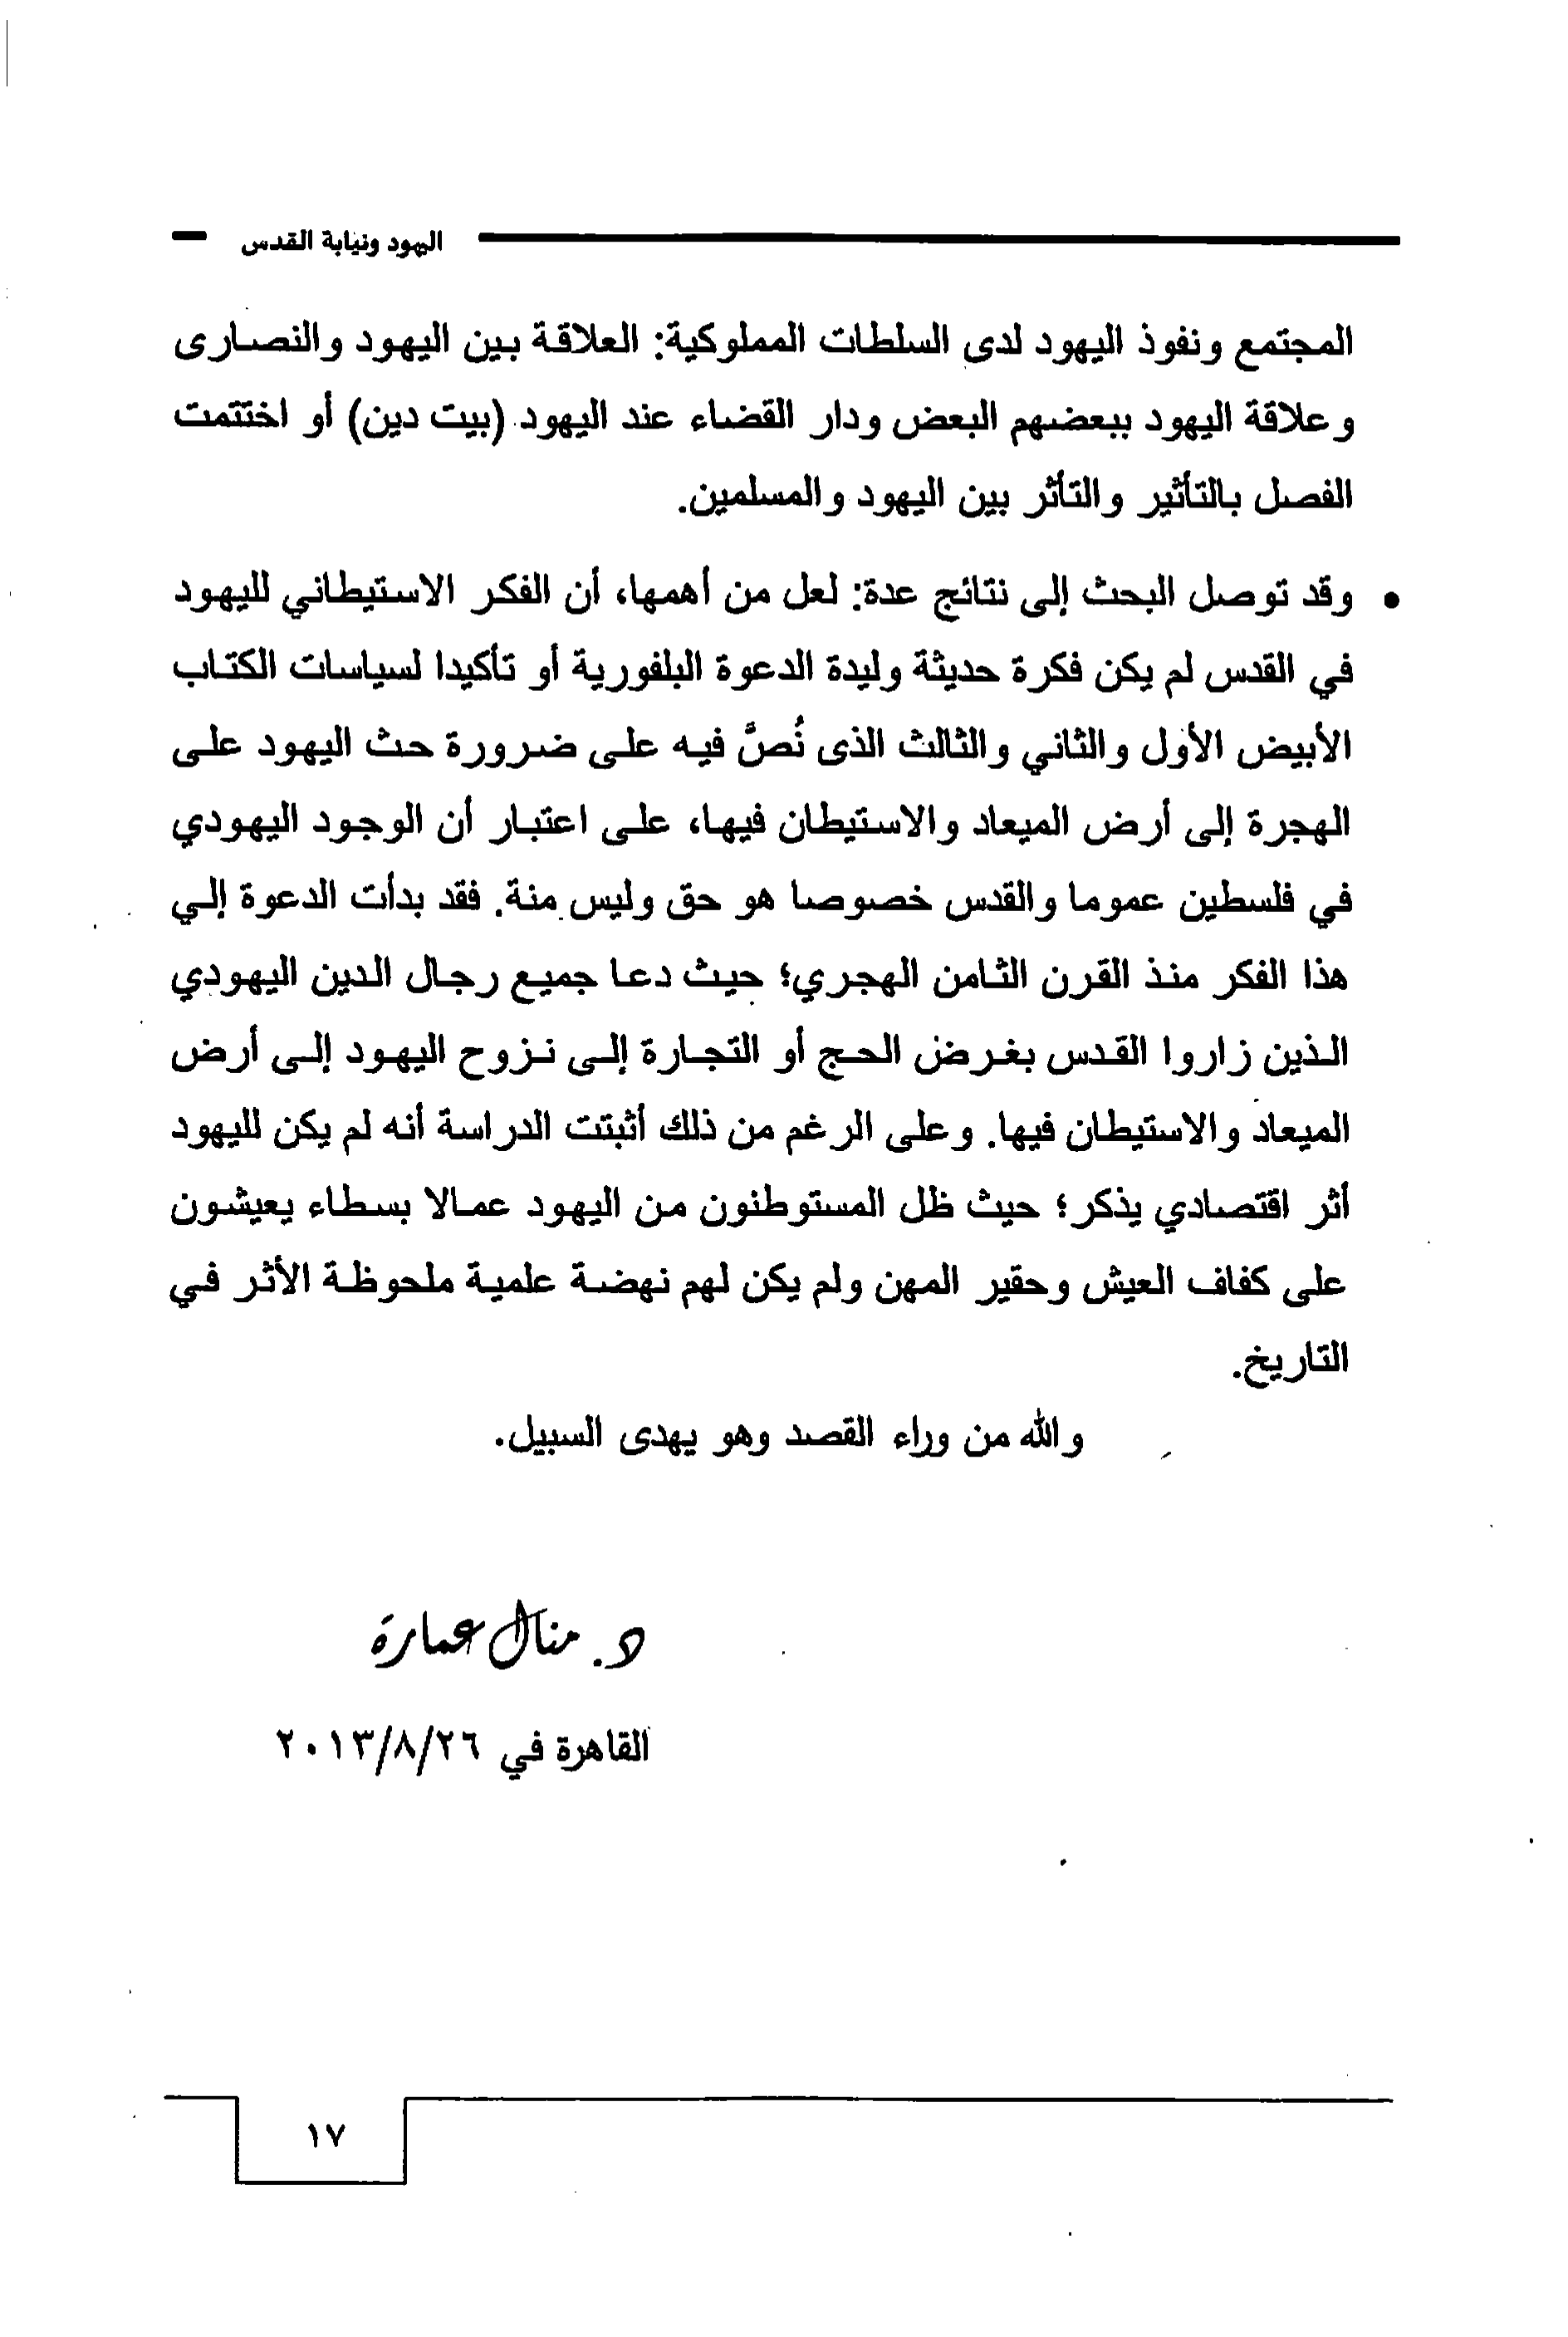 اليهود ونيابة القدس
المجتمع ونفوذ اليهود لدى السلطات المملوكية: العلاقة بين اليهود والنصارى
وعلاقة اليهود ببعضهم البعض ودار القضاء عند اليهود (بيت دين) أو اختتمت
الفصل بالتأثير والتأثر بين اليهود والمسلمين.
• وقد توصل البحث إلى نتائج عدة: لعل من أهمها، أن الفكر الاستيطاني لليهود
في القدس لم يكن فكرة حديثة وليدة الدعوة البلفورية أو تأكيدا لسياسات الكتاب
الأبيض الأول والثاني والثالث الذى نُصَّ فيه على ضرورة حث اليهود على
الهجرة إلى أرض الميعاد والاستيطان فيها، على اعتبار أن الوجود اليهودي
في فلسطين عموما والقدس خصوصا هو حق وليس منة. فقد بدأت الدعوة إلي
هذا الفكر منذ القرن الثامن الهجري؛ حيث دعا جميع رجال الدين اليهودي
الذين زاروا القدس بغرض الحج أو التجارة إلى نزوح اليهود إلى أرض
الميعاد والاستيطان فيها. وعلى الرغم من ذلك أثبتت الدراسة أنه لم يكن لليهود
أثر اقتصادي يذكر؛ حيث ظل المستوطنون من اليهود عمالا بسطاء يعيشون
على كفاف العيش وحقير المهن ولم يكن لهم نهضة علمية ملحوظة الأثر في
التاريخ.
والله من وراء القصد وهو يهدى السبيل.
د. منال عمارة
القاهرة في ٢٠١٣/٨/٢٦
١٧